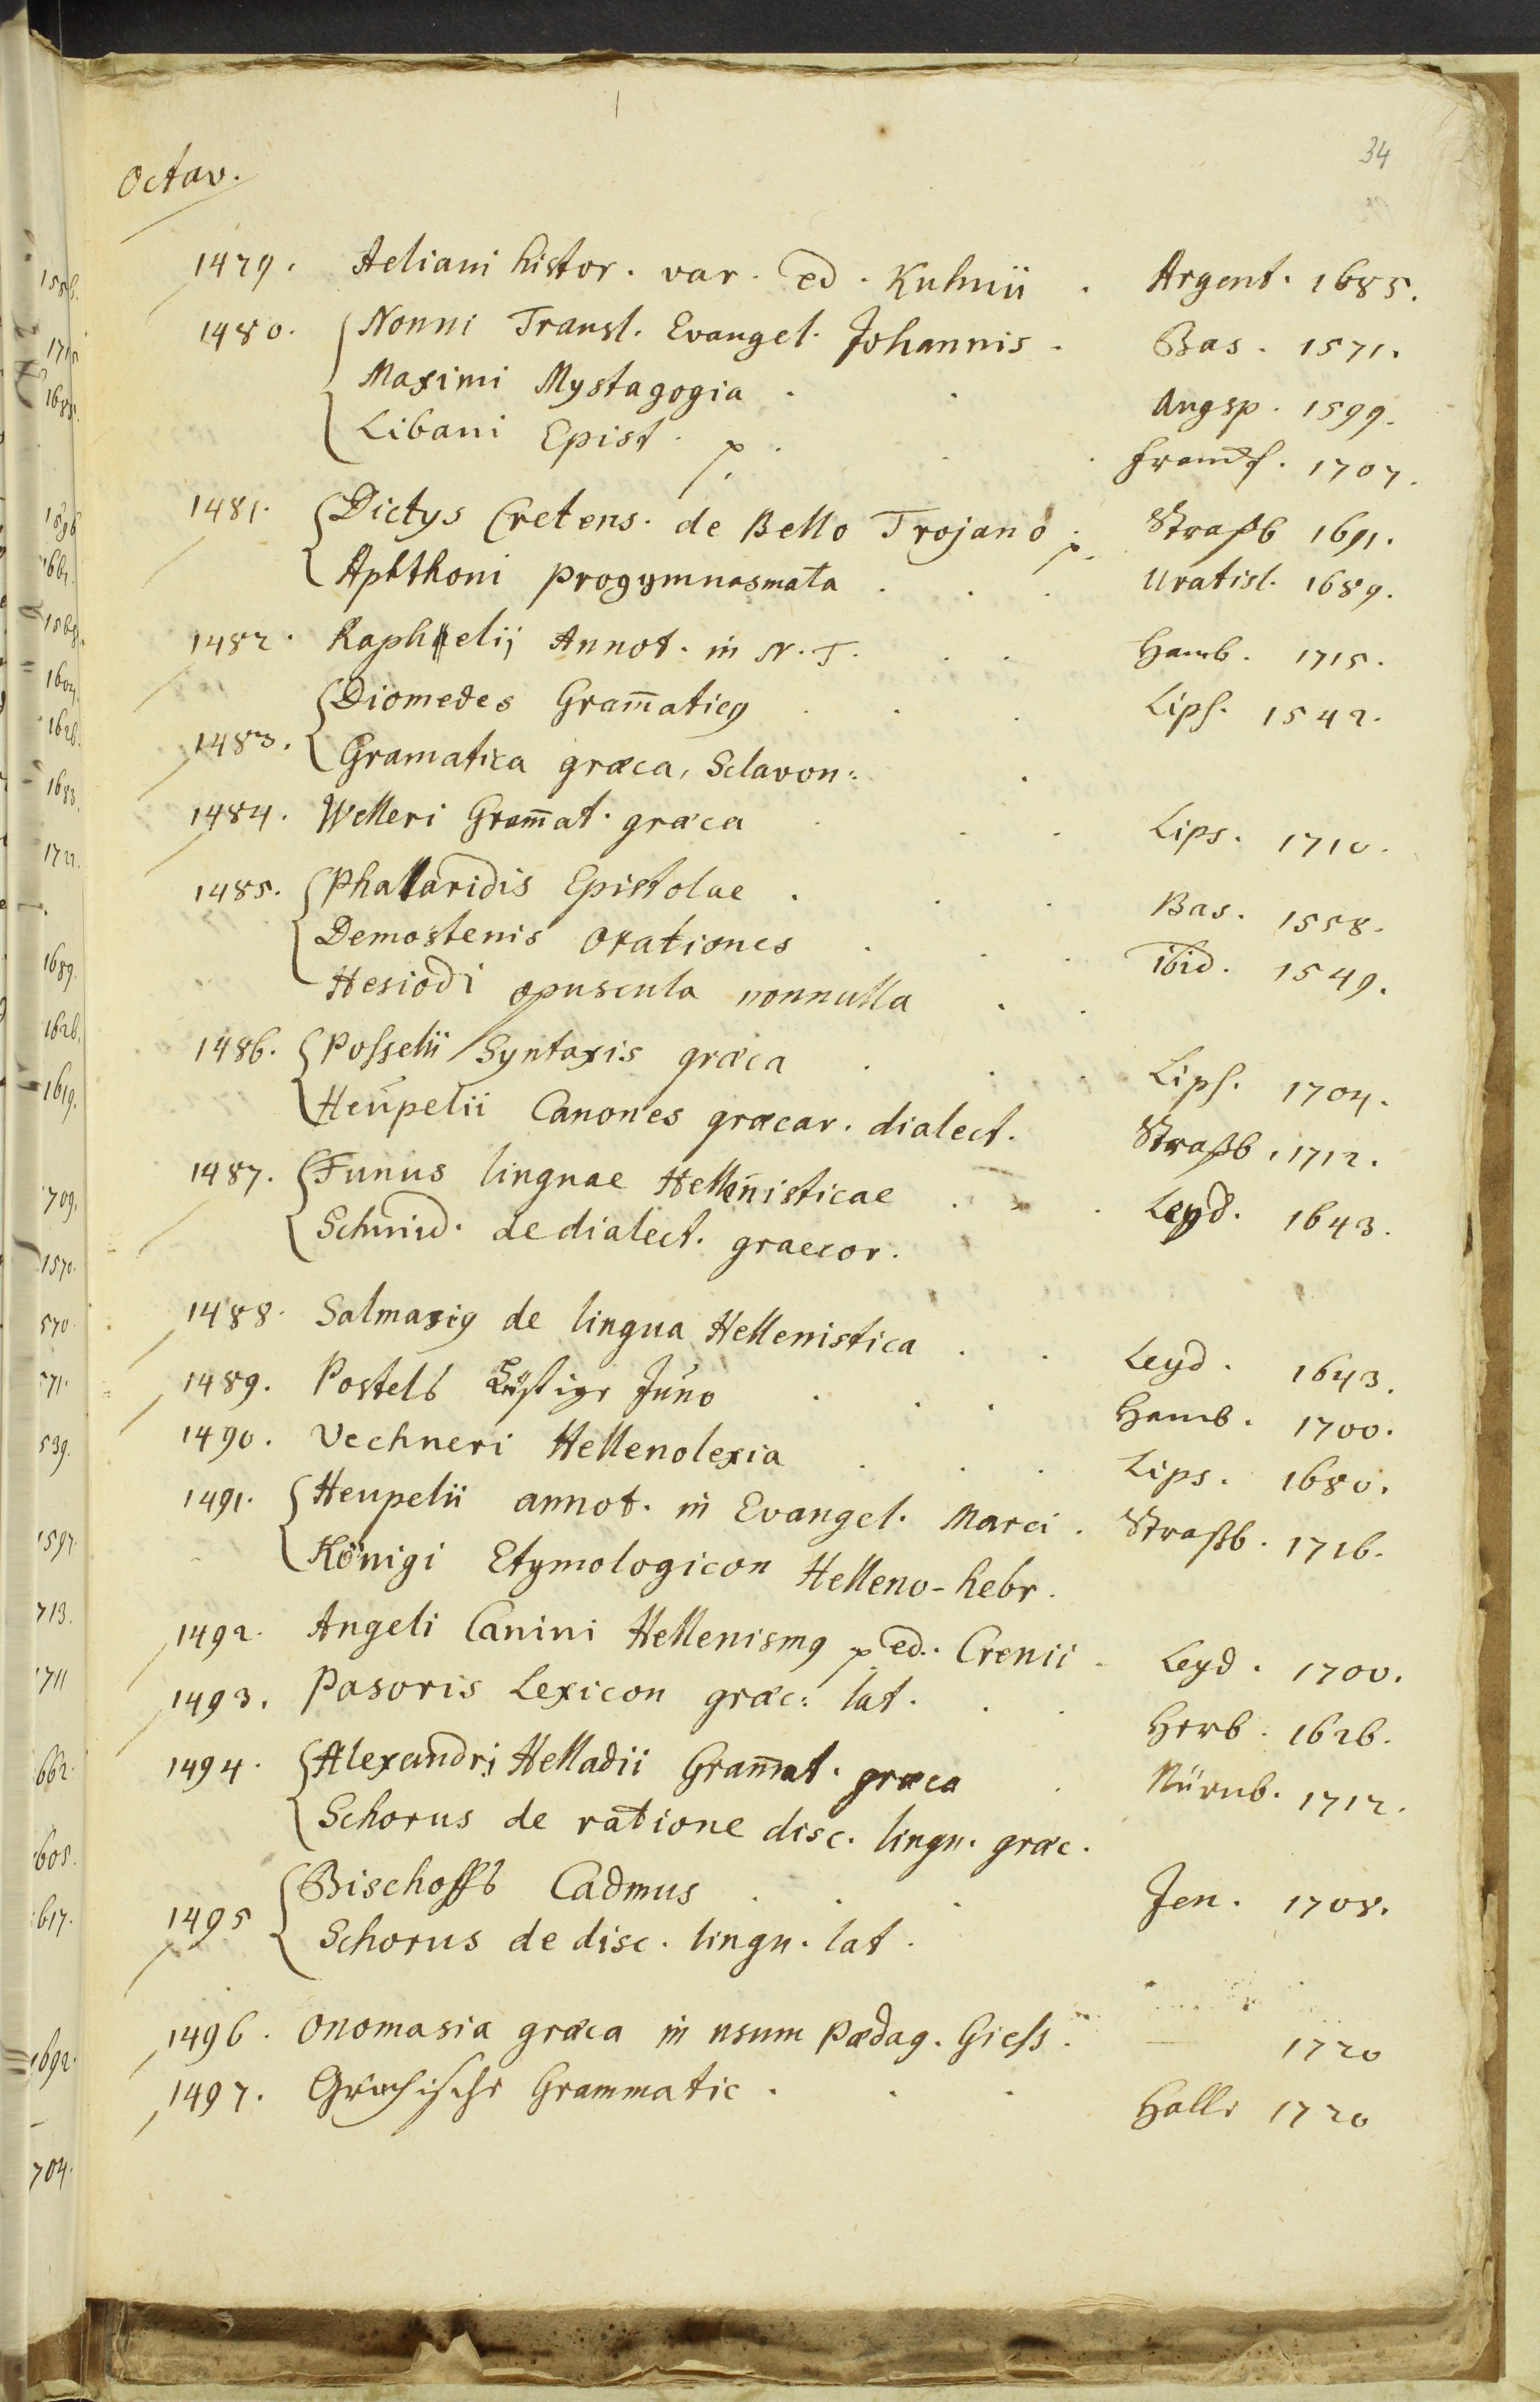 34
Octav.
1479. Aeliani histor. var. ed. Kuhnii . Argent. 1685.
1480. Nonni Transl. Evangel. Johannis . Bas. 1571.
Maximi Mystagogia . . Augsp. 1599.
Libani Epist. . . Franckf. 1707.
1481. Dictys Cretens. de Bello Trojano . Straßb 1691.
Aphthoni progymnasmata . . . Uratisl. 1689.
1482. Raphelij Annot. in N. T. . . Hamb. 1715.
Diomedes Gram̄aticg . . . Lips. 1542.
1483. Gramatica græca, Sclavon: .
1484. Welleri Gram̄at. græca . . . Lips. 1710.
1485. Phalaridis Epistolae . . . Bas. 1558.
Demostenis Orationes . . . ibid. 1549.
Hesiodi opuscula nonnulla . .
1486. Posselii Syntaxis græca . . . Lips. 1704.
Heupelii Canones græcar. dialect. Straßb. 1712.
1487. Funus linguae Hellenisticae . . . Leyd. 1643.
Schmid. de dialect. graecor.
1488. Salmasig de lingua Hellenistica . . Leyd. 1643.
1489. Postels Listige Juno . . . Hamb. 1700.
1490. Vechneri Hellenolexia . . . Lips. 1680.
1491. Heupelii annot. in Evangel. Marci . Straßb. 1716.
Königi Etymologicon Helleno-hebr.
1492. Angeli Canini Hellenismg ed. Crenii . Leyd. 1700.
1493. Pasoris Lexicon græc: lat. . . Herb. 1626.
1494. Alexandri Helladii Gram̄at. græca . Nürnb. 1712.
Schorus de ratione disc. lingu. græc.
Bischoffs Cadmus . . . Jen. 1708.
1495 Schorus de disc. lingu. lat.
1496. Onomasia græca in usum Pædag. Giess. — 1720
1497. Griechische Grammatic . . . Halle 1720